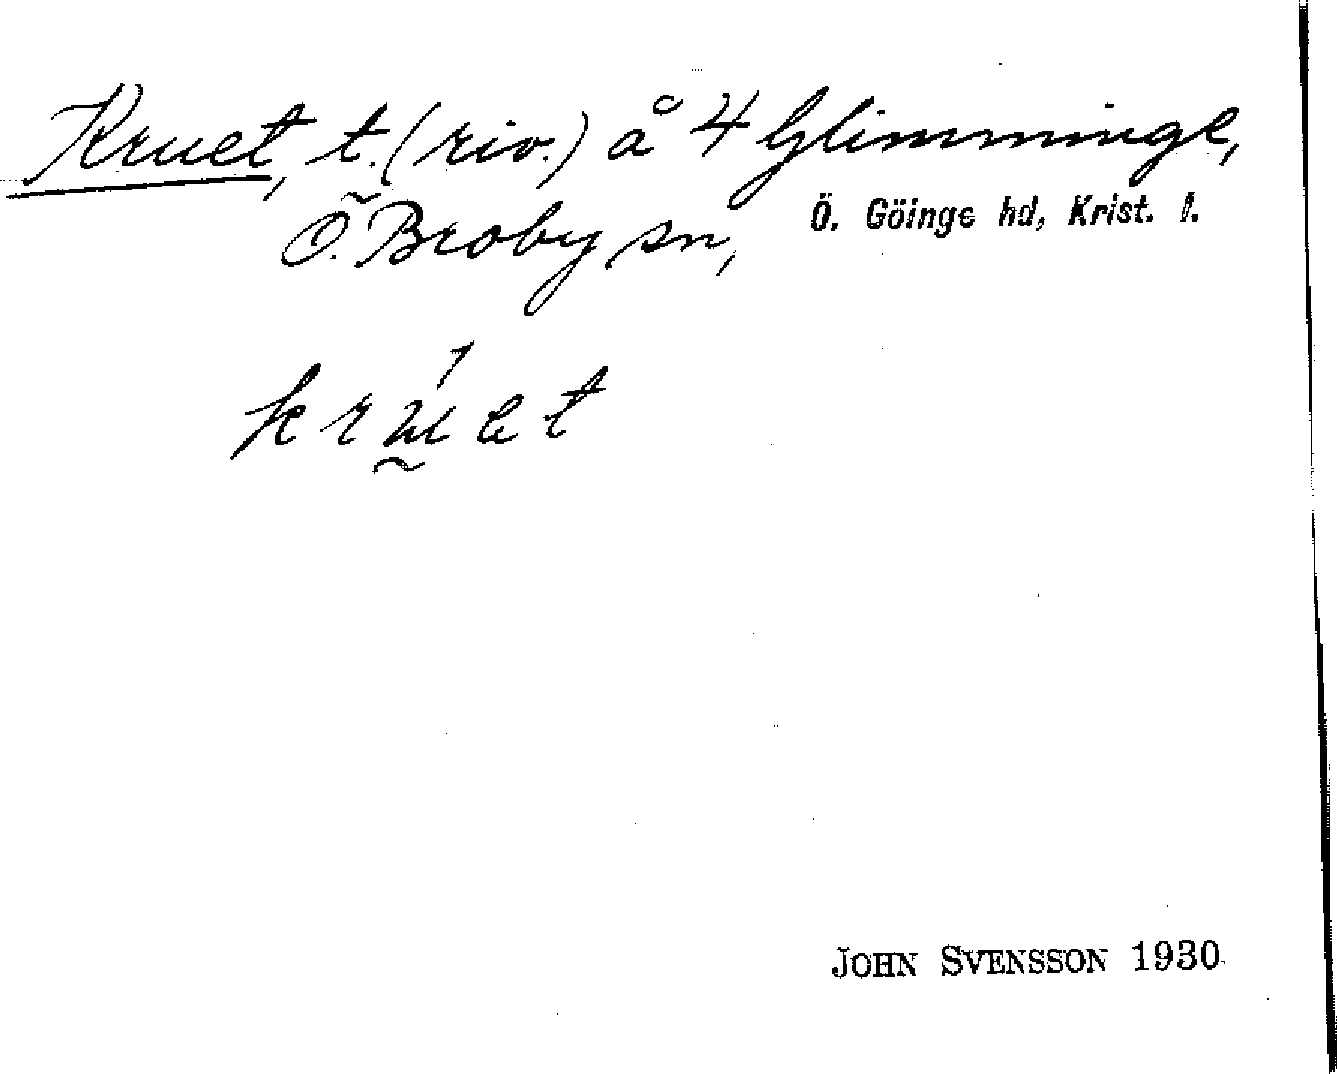 Kruet, t. (riv.) å 4 Glimminge,
Ö. Broby sn, Ö. Göinge hd, Krist. l.
krúet
JOHN SVENSSON 1930